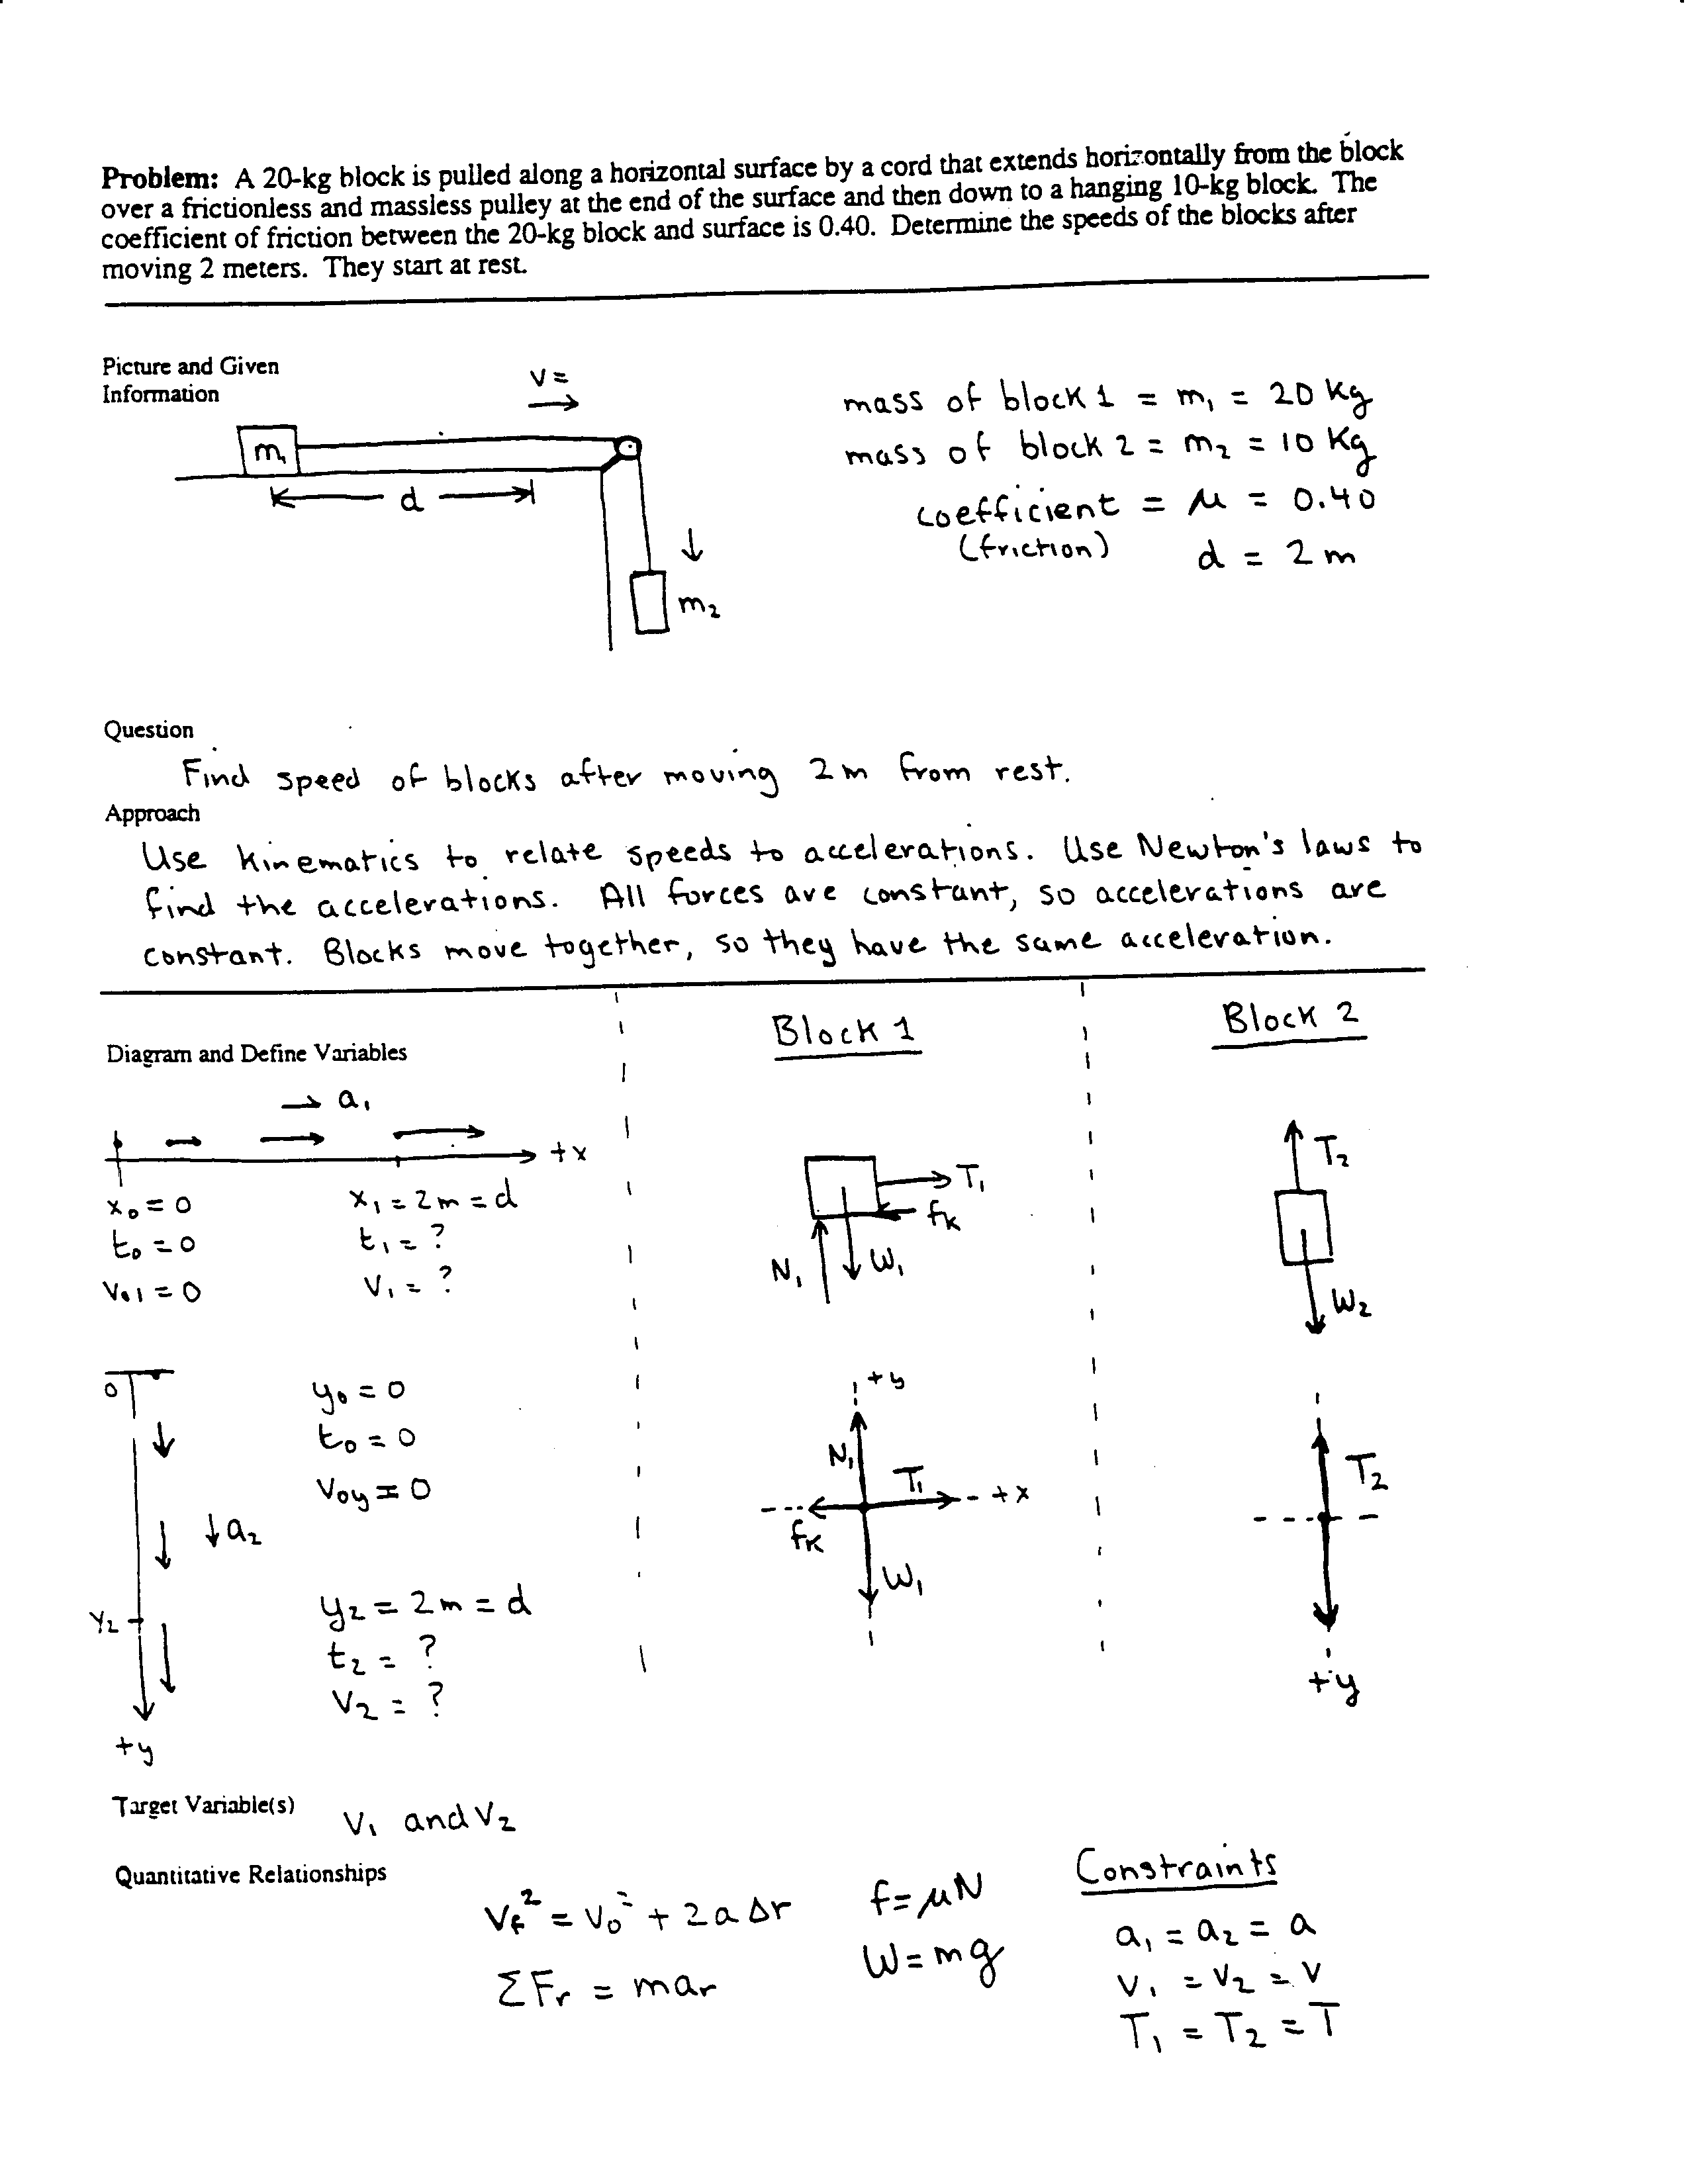 Problem: A 20-kg block is pulled along a horizontal surface by a cord that extends horizontally from the block
over a frictionless and massless pulley at the end of the surface and then down to a hanging 10-kg block. The
coefficient of friction between the 20-kg block and surface is 0.40. Determine the speeds of the blocks after
moving 2 meters. They start at rest.
Picture and Given
Information
V =
m₁
d
m₂
mass of block 1 = m₁ = 20 kg
mass of block 2 = m₂ = 10 kg
coefficient = μ = 0.40
(friction)
d = 2 m
Question
Find speed of blocks after moving 2m from rest.
Approach
Use kinematics to relate speeds to accelerations. Use Newton's laws to
find the accelerations. All forces are constant, so accelerations are
constant. Blocks move together, so they have the same acceleration.
Diagram and Define Variables
a₁
+x
x₀ = 0
x₁ = 2m = d
t₀ = 0
t₁ = ?
V₀₁ = 0
V₁ = ?
0
y₀ = 0
t₀ = 0
V₀y = 0
a₂
y₂
y₂ = 2m = d
t₂ = ?
V₂ = ?
+y
Block 1
T₁
fk
N₁
W₁
+y
N₁
T₁
+x
fk
W₁
Block 2
T₂
W₂
T₂
+y
Target Variable(s)
V₁ and V₂
Quantitative Relationships
Vf² = V₀² + 2a Δr
ΣFr = mar
f = μN
W = mg
Constraints
a₁ = a₂ = a
V₁ = V₂ = V
T₁ = T₂ = T